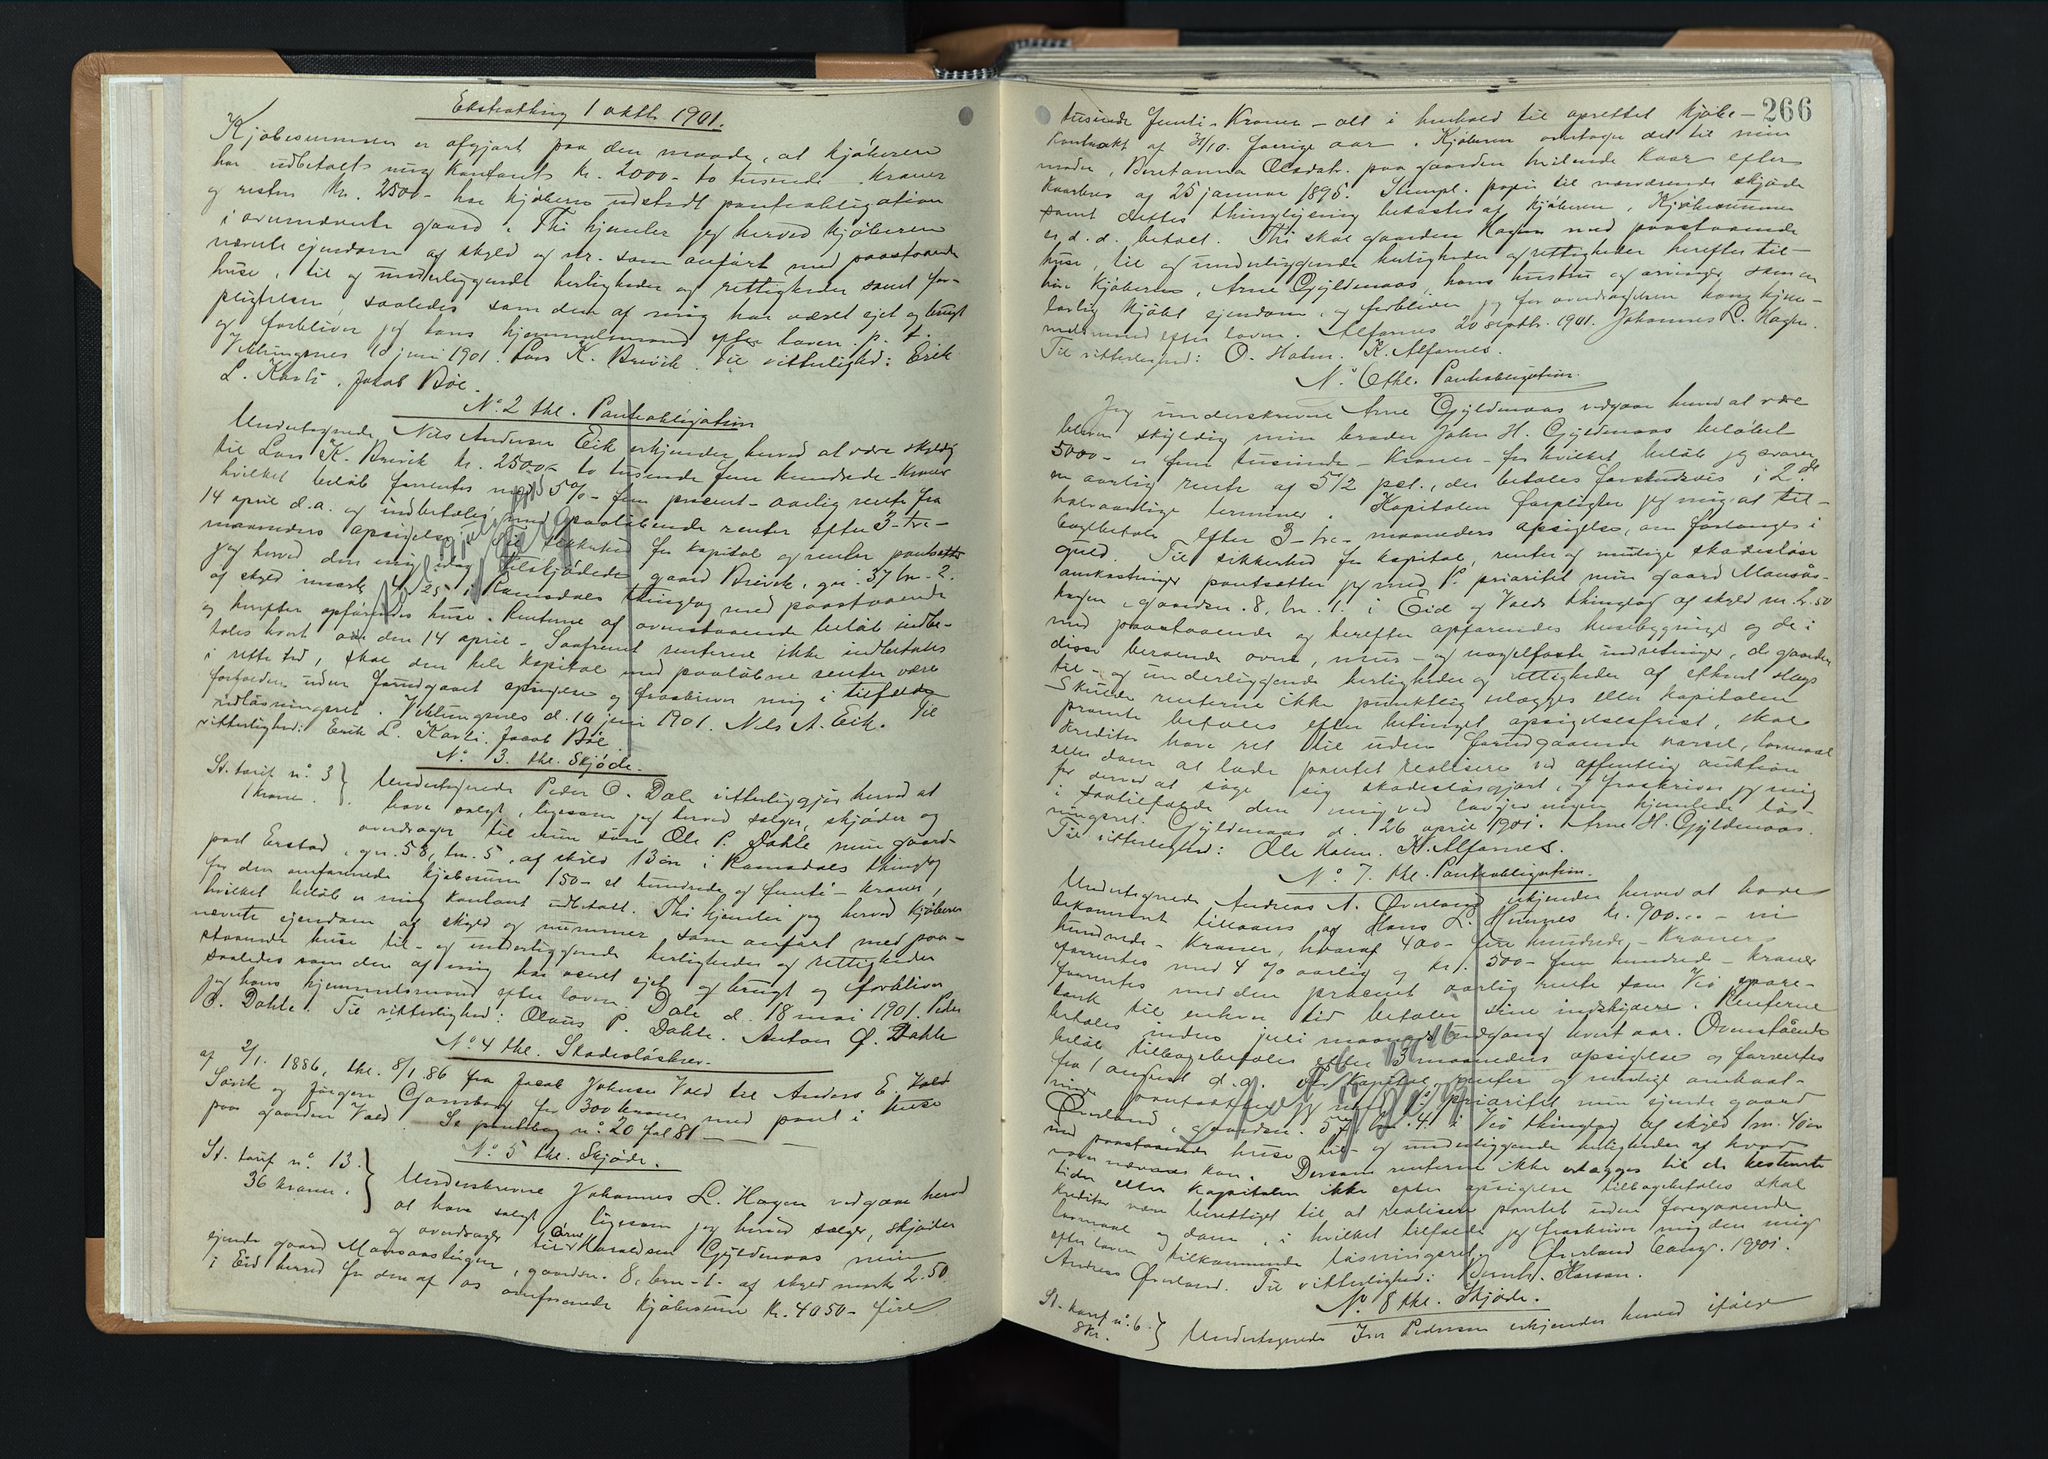 Ekstrathing 1 oktbr. 1901.
Kjøbesummen er afgjort paa den maade, at kjøberen
har udbetalt mig kontant kr. 2000 - to tusende kroner
og resten kr. 2500 - har kjøberen udstedt pantobligation
i ovennævnte gaard. Thi hjemler jeg herved kjøberen
nævnte eiendom af skyld og nr. som anført med paastaaende
huse, til og underliggende herligheder og rettigheder samt for-
pligtelser, saaledes som den af mig har været eiet og brugt
og forbliver jeg hans hjemmelsmand efter loven. p. t.
Veblungsnes 10 juni 1901. Lars K. Brevik. Til vitterlighed: Erik
L. Karli. Jacob Bøe.
No. 2 thl. Pantobligation
Undertegnede Nils Andersen Eik erkjender herved at være skyldig
til Lars K. Brevik kr. 2500 - to tusende fem hundrede - kroner
hvilket beløb forrentes med 5% - fem procent - aarlig rente fra
14 april d. a. og indbetales med paaløbende renter efter 3 - tre -
maaneders opsigelse. Til sikkerhed for kapital og renter pantsætter
jeg herved den mig idag tilskjødede gaard Brevik, gn. 37 bn. 2.
af skyld mark 4.25 i Romsdals thinglag med paastaaende
og herefter opførendes huse. Renterne af ovenstaaende beløb indbe-
tales hvert aar den 14 april. Saafremt renterne ikke indbetales
i rette tid, skal den hele kapital med paaløbne renter være
forfalden uden forudgaaet opsigelse og fraskriver mig i tilfælde
indløsningsret. Veblungsnes d. 10 juni 1901. Nils A. Eik. Til
vitterlighed: Erik L. Karli. Jacob Bøe
No. 3. thl. Skjøde.
St. tarif no. 3
1 krone.
Undertegnede Peder O. Dale vitterliggjør herved at
have solgt, ligesom jeg herved sælger, skjøder og
overdrager til min søn Ole P. Dahle min gaard-
part Erstad, gn. 58, bn. 5, af skyld 13 øre i Romsdals thinglag
for den omforenede kjøbesum 150 - et hundrede og femti - kroner,
hvilket beløb er mig kontant udbetalt. Thi hjemler jeg herved kjøberen
nævnte eiendom af skyld og nummer som anført med paa-
staaende huse til- og underliggende herligheder og rettigheder
saaledes som den af mig har været eiet og brugt og forbliver
jeg hans hjemmelsmand efter loven. Dale d. 18 mai 1901. Peder
O. Dahle. Til vitterlighed: Olaus P. Dahle. Anton O. Dahle
No. 4 thl. Skadesløsbrev.
af 2/1. 1886, thl. 8/1. 86 fra Jacob Johnsen Vold til Anders E. Vold
Sørvik og Jørgen Gjønberg for 300 kroner med pant i huse
paa gaarden Vold. Se pantebog no. 20 fol. 81
No. 5 thl. Skjøde.
St. tarif no. 13.
36 kroner.
Underskrevne Johannes L. Hagen vedgaar herved
at have solgt ligesom jeg herved sælger, skjøder
og overdrager til Arne Haraldsen Gyldenaas min
eiende gaard Mansaashagen, gaardsn. 8, brn. 1. af skyld mark 2.50
i Eid herred for den af os omforenede kjøbesum kr. 4050 - fire
266
tusinde femti - Kroner - alt i henhold til oprettet kjøbe-
kontrakt af 31/10. forrige aar. Kjøberen overtager det til min
moder, Beretanna Olsdatr. paa gaarden hvilende kaar efter
kaarbrev af 25 januar 1895. Stempl. papir til nærværende skjøde
samt dettes thinglysning bekostes af kjøberen. Kjøbesummen
er d. d. betalt. Thi skal gaarden Hagen med paastaaende
huse, til og underliggende herligheder og rettigheder herefter til-
høre kjøberen, Arne Gyldenaas, hans hustru og arvinger som en
lovlig kjøbt eiendom, og forbliver jeg for overdragelsen hans hjem-
melsmand efter loven. Alfarnes 20 septbr. 1901. Johannes L. Hagen.
Til vitterlighed: O. Holm. K. Alfarnes.
No. 6 thl. Pantobligation.
Jeg underskrevne Arne Gyldenaas vedgaar herved at være
bleven skyldig min broder John H. Gyldenaas beløbet
5000 - er fem tusinde - Kroner - for hvilket beløb jeg svarer
en aarlig rente af 5 1/2 pct., der betales forskudsvis i 2de
halvaarlige terminer. Kapitalen forpligter jeg mig at til-
bagebetale efter 3 - tre - maaneders opsigelse, om forlanges i
guld. Til sikkerhed for kapital, renter og mulige skadesløse
omkostninger pantsætter jeg med 1. prioritet min gaard Mansås-
hagen, gaardsn. 8, bn. 1. i Eid og Volds thinglag af skyld m. 2.50
med paastaaende og herefter opførendes husebygninger og de i
disse beroende ovne, mur- og nagelfaste indretninger, de gaarden
til- og underliggende herligheder og rettigheder af ethvert slags
Skulde renterne ikke punktlig erlægges eller kapitalen
promte betales efter betinget opsigelsesfrist, skal
kreditor have ret til uden forudgaaende varsel, lovmaal
eller dom at lade pantet realisere ved offentlig auktion
for derved at søge sig skadesløsgjort, og fraskriver jeg mig
i saatilfælde den mig ved lovgivningen hjemlede løs-
ningsret. Gyldenaas d. 26 april 1901. Arne H. Gyldenaas.
Til vitterlighed: Ole Holm. K. Alfarnes.
No. 7. thl. Pantobligation.
Undertegnede Andreas A. Øverland erkjender herved at have
bekommet tillaans af Hans L. Humnes kr. 900.00 - ni
hundrede - Kroner, hvoraf 400 - fire hundrede - Kroner
forrentes med 4% aarlig og kr. 500 - fem hundrede - kroner
forrentes med den procent aarlig rente som Veø spare-
bank til enhver tid betaler sine indskydere. Renterne
betales inden juli maaneds udgang hvert aar. Ovenstående
beløb tilbagebetales efter 3 maaneders opsigelse og forrentes
fra 1 august d. a. For kapital renter og mulige omkost-
ninger pantsætter jeg med 1. prioritet min eiende gaard
Øverland, gaardsn. 57, bn. 4. i Veø thinglag af skyld 1 m. 40 øre
med paastaaende huse til- og underliggende herligheder af hvad
navn nævnes kan. Dersom renterne ikke erlægges til de bestemte
tider eller kapitalen ikke efter opsigelse tilbagebetales skal
kreditor være berettiget til at realisere pantet uden foregaaende
lovmaal og dom, i hvilket tilfælde jeg fraskriver mig den mig
efter loven tilkommende løsningsret. Øverland 6 aug. 1901.
Andreas Øverland. Til vitterlighed: Bernh. Hansen.
No. 8 thl. Skjøde.
St. tarif no. 6.
8 kr.
Undertegnede Iver Pedersen erkjender herved ifølge